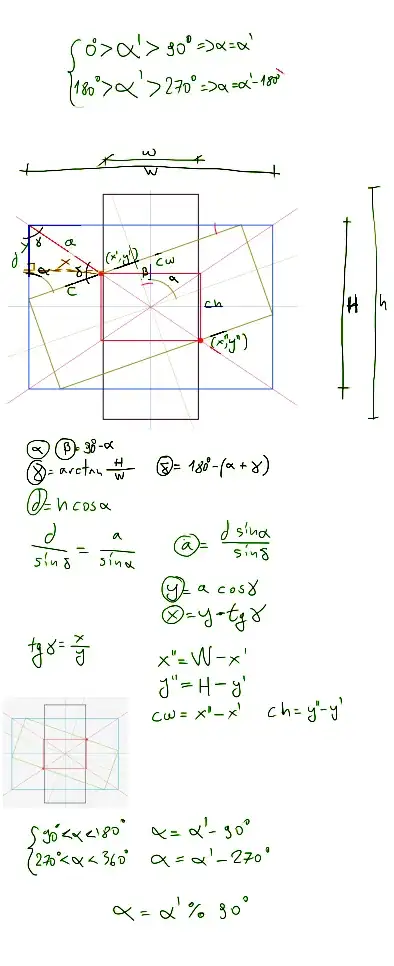 0° > α' > 90° => α = α'
180° > α' > 270° => α = α' - 180°
w
W
γ
a
d
x
(x', y')
cw
β
α
α
δ
c
ch
H
h
(x'', y'')
α β = 90° - α
γ = arctan H/W δ = 180° - (α + γ)
d = h cos α
d/sin δ = a/sin α a = d sin α/sin δ
y = a cos γ
x = y · tg γ
tg γ = x/y
x'' = W - x'
y'' = H - y'
cw = x'' - x' ch = y'' - y'
90° < α < 180° α = α' - 90°
270° < α < 360° α = α' - 270°
α = α' % 90°